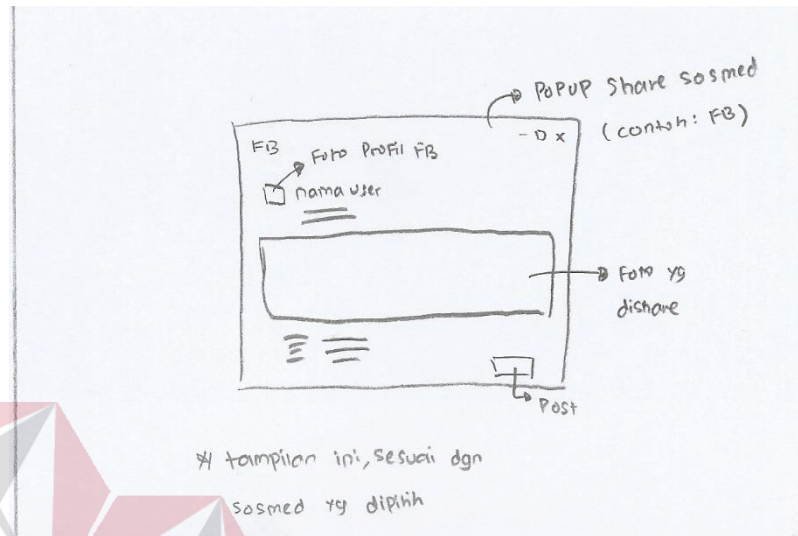 POPUP Share sosmed
(contoh: FB)
FB
- D x
Foto Profil FB
nama user
Foto yg
dishare
Post
* tampilan ini, sesuai dgn
sosmed yg dipilih